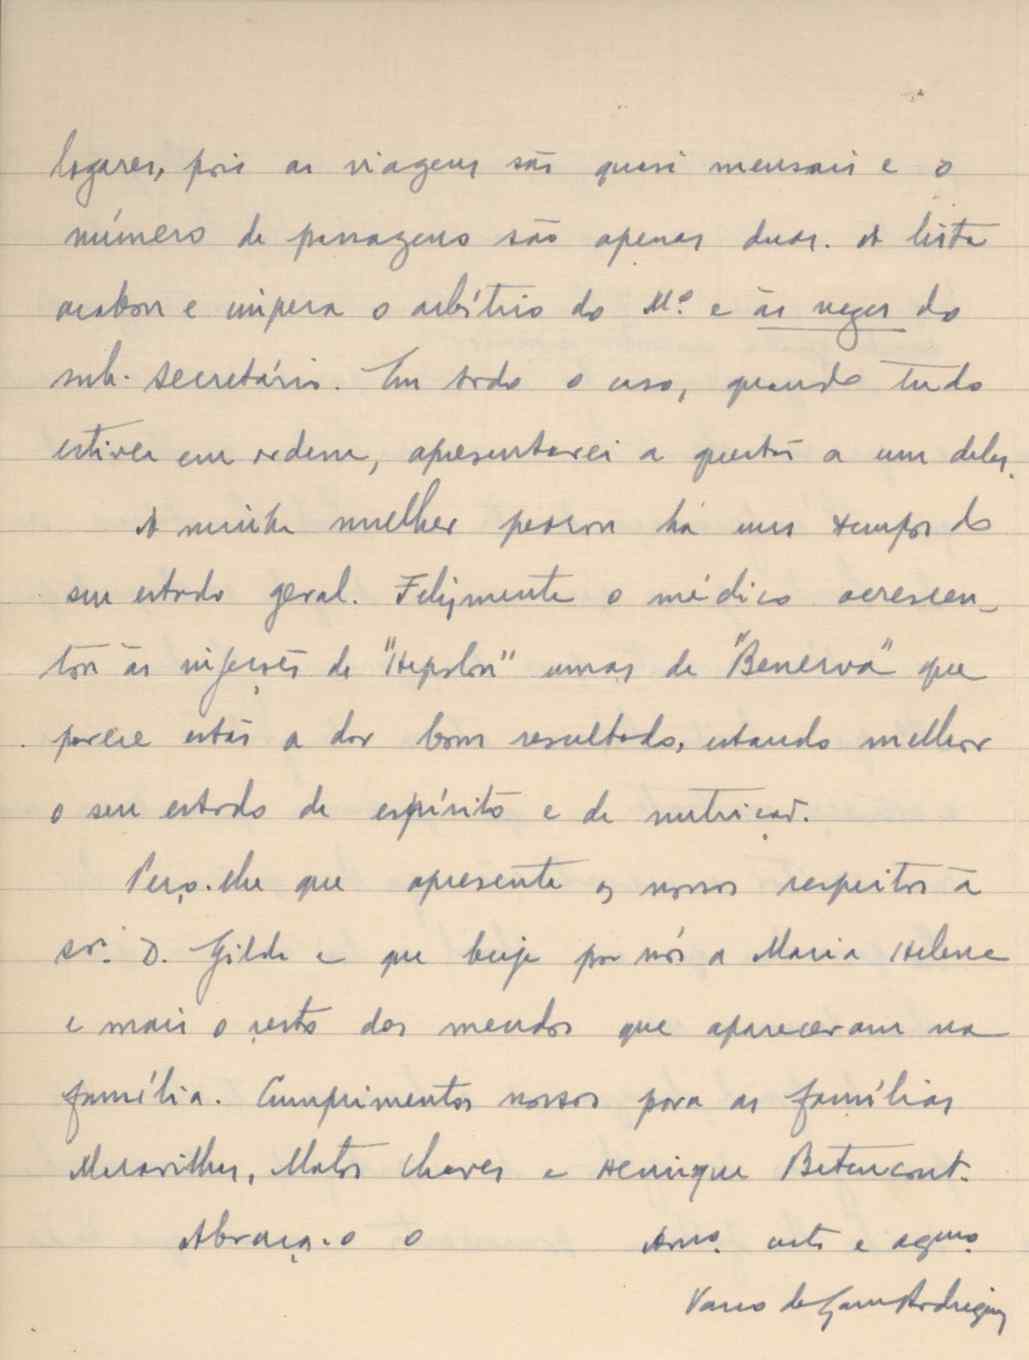 logares, pois as viagens são quasi mensais e o
número de passagens são apenas duas. A lista
acabou e impera o arbítrio do Mº. e às vezes do
sub-secretário. Em todo o caso, quando tudo
estiver em ordem, apresentarei a questão a um deles.
A minha mulher peorou há uns tempos do
seu estado geral. Felizmente o médico acrescen-
tou às injecções de "Hepolon" umas de "Benerva" que
parece estão a dar bom resultado, estando melhor
o seu estado de espírito e de nutrição.
Peço-lhe que apresente os nossos respeitos à
srª. D. Gilda e que beije por nós a Maria Helena
e mais o resto dos meudos que apareceram na
família. Cumprimentos nossos para as famílias
Maravilhas, Matos Chaves e Henrique Betencourt.
Abraça-o o Amº. certo e agmº.
Vasco da Gama Rodrigues